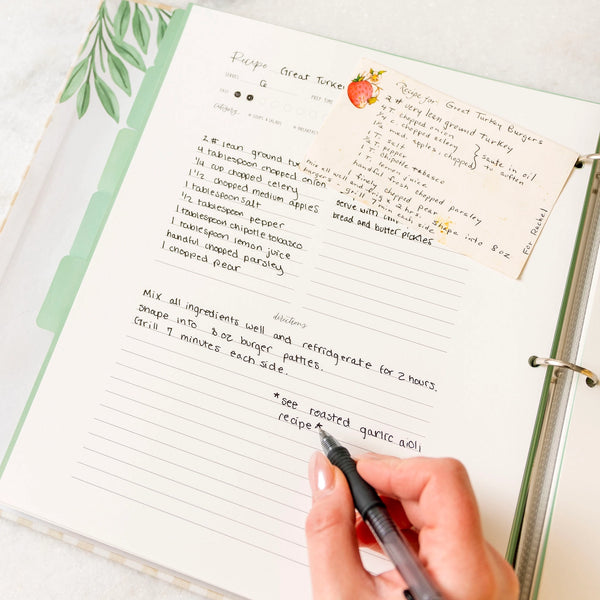 Recipe Great Turke
SERVES 6
PREP TIME
EASE
Category SOUPS & SALADS
BREAKFAST
2 # lean ground tu
4 tablespoon chopped onion
1/4 cup chopped celery
1 1/2 chopped medium apples
1 tablespoon salt
1/2 tablespoon pepper
1 tablespoon chipotle tobasco
1 tablespoon lemon juice
handful chopped parsley
1 chopped pear
serve with
bread and butter pickles
directions
Mix all ingredients well and refridgerate for 2 hours.
shape into 8 oz burger patties.
Grill 7 minutes each side.
*see roasted garlic aioli
recipe*
Recipe for: Great Turkey Burgers
2 # very lean ground Turkey
4 T. chopped onion
1/4 c. chopped celery
1 1/2 med. apples, chopped
saute in oil
to soften
1 T. salt
1/2 T. pepper
1 T. chipotle tabasco
1 T. lemon juice
handful fresh chopped parsley
1/2 finely chopped pear
mix all well and frig x 2 hrs. shape into 8oz
burgers - grill 7 min each side
For: Rachel